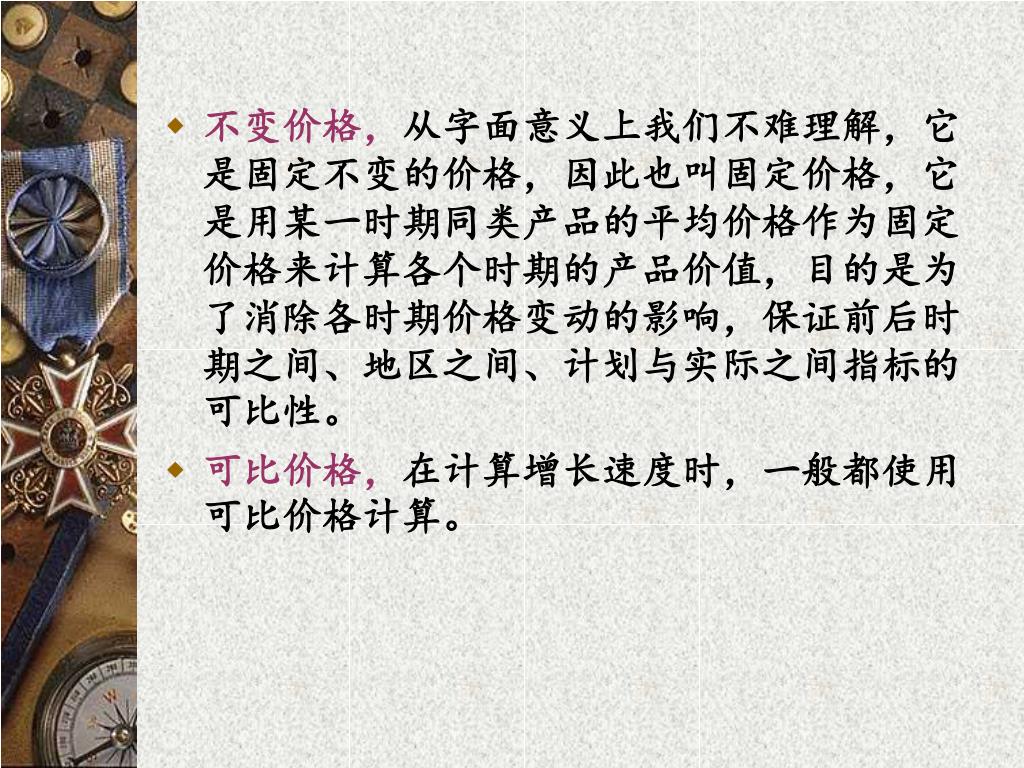 不变价格，从字面意义上我们不难理解，它
是固定不变的价格，因此也叫固定价格，它
是用某一时期同类产品的平均价格作为固定
价格来计算各个时期的产品价值，目的是为
了消除各时期价格变动的影响，保证前后时
期之间、地区之间、计划与实际之间指标的
可比性。
可比价格，在计算增长速度时，一般都使用
可比价格计算。